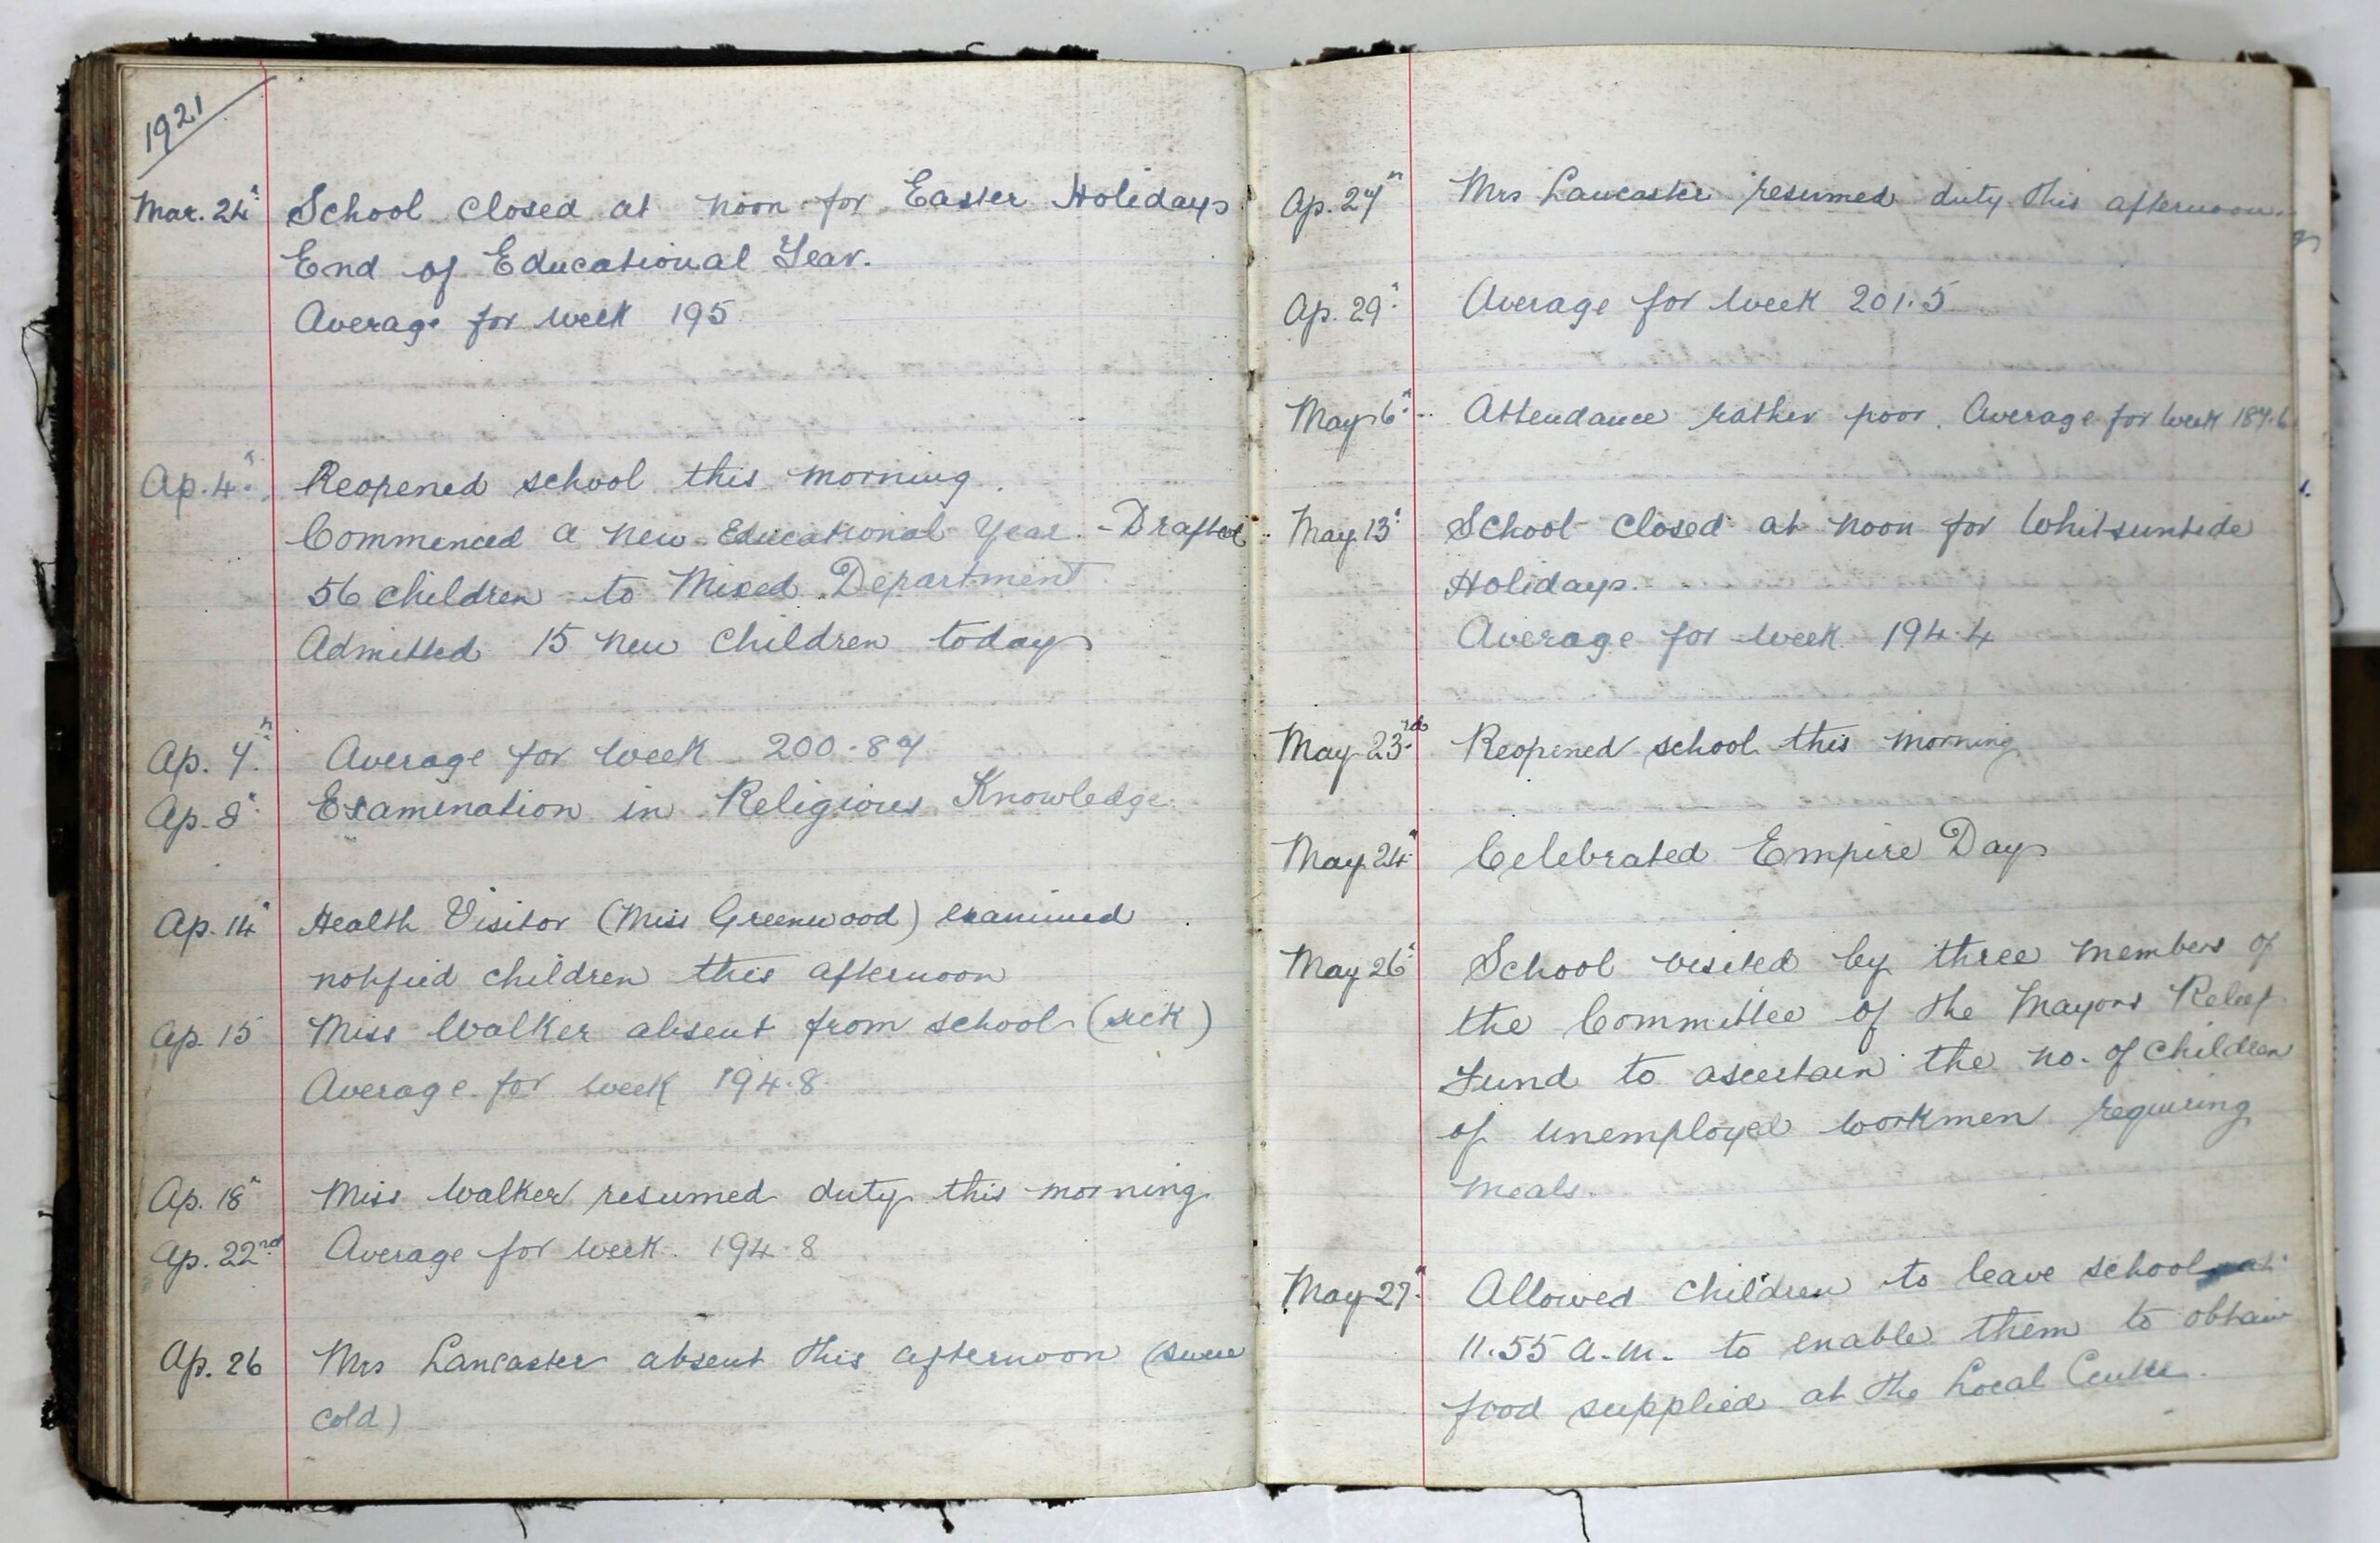 1921
Mar. 24th School closed at noon for Easter Holidays
End of Educational Year.
Average for week 195
Ap. 4th Reopened school this morning.
Commenced a new Educational Year. - Drafted
56 children to Mixed Department.
Admitted 15 new children today
Ap. 7th Average for week 200.87
Ap. 8th Examination in Religious Knowledge.
Ap. 14th Health Visitor (Miss Greenwood) examined
notified children this afternoon
Ap. 15 Miss Walker absent from school (sick)
Average for week 194.8
Ap. 18th Miss Walker resumed duty this morning.
Ap. 22nd Average for week. 194.8
Ap. 26 Mrs Lancaster absent this afternoon (severe
cold)
Ap. 27th Mrs Lancaster resumed duty this afternoon.
Ap. 29th Average for week 201.5
May 6th Attendance rather poor. Average for week 187.6
May 13th School closed at noon for Whitsuntide
Holidays.
Average for week 194.4
May 23rd Reopened school this morning
May 24th Celebrated Empire Day
May 26th School visited by three members of
the Committee of the Mayors Relief
Fund to ascertain the no. of children
of unemployed workmen requiring
meals.
May 27th Allowed children to leave school at
11.55 a.m. to enable them to obtain
food supplied at the Local Centre.